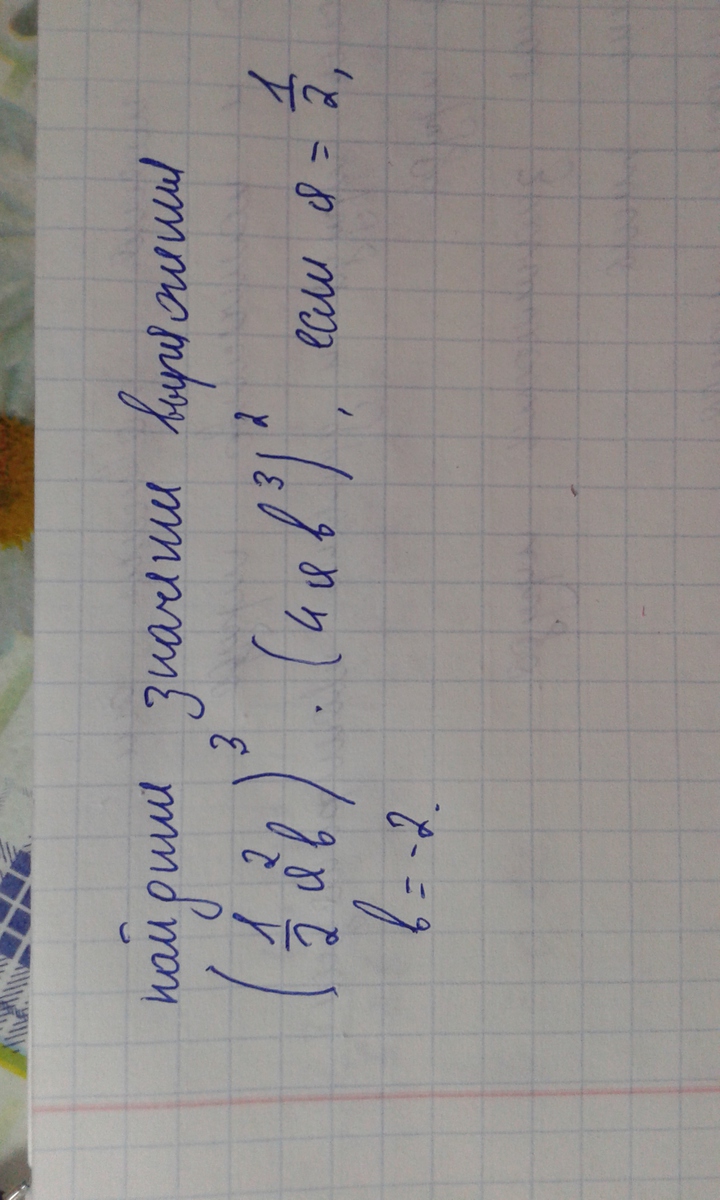 найдите значение выражения
(1/2 a²в)³ · (4aв³)², если a = 1/2,
в = -2.